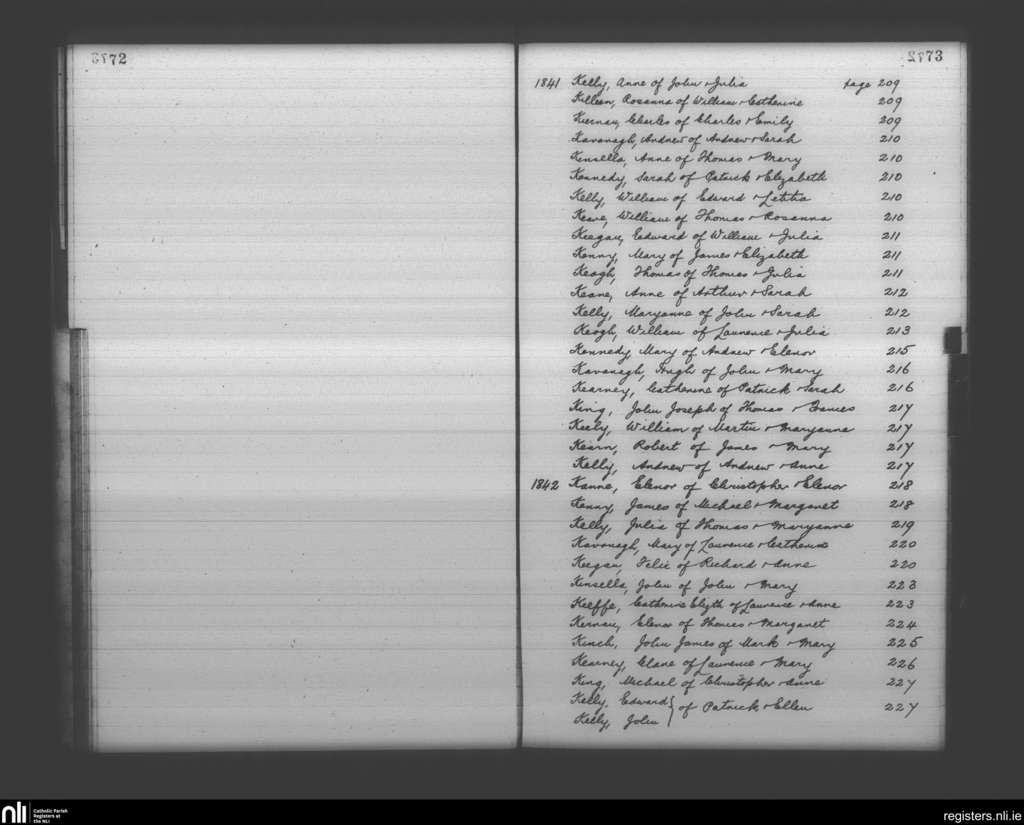 3772
3773
1841 Kelly, Anne of John & Julia page 209
Killeen, Rosanna of William & Catherine 209
Kiernan, Charles of Charles & Emily 209
Kavanagh, Andrew of Andrew & Sarah 210
Kinsella, Anne of Thomas & Mary 210
Kennedy, Sarah of Patrick & Elizabeth 210
Kelly, William of Edward & Letitia 210
Keane, William of Thomas & Rosanna 210
Keegan, Edward of William & Julia 211
Kenny, Mary of James & Elizabeth 211
Keogh, Thomas of Thomas & Julia 211
Keane, Anne of Arthur & Sarah 212
Kelly, Maryanne of John & Sarah 212
Keogh, William of Laurence & Julia 213
Kennedy, Mary of Andrew & Elenor 215
Kavanagh, Hugh of John & Mary 216
Kearney, Catherine of Patrick & Sarah 216
King, John Joseph of Thomas & Frances 217
Keely, William of Martin & Maryanne 217
Kearn, Robert of James & Mary 217
Kelly, Andrew of Andrew & Anne 217
1842 Kanne, Elenor of Christopher & Elenor 218
Kenny, James of Michael & Margaret 218
Kelly, Julia of Thomas & Maryanne 219
Kavanagh, Mary of Laurence & Catherine 220
Keegan, Felix of Richard & Anne 220
Kinsella, John of John & Mary 223
Keeffe, Catherine Elizth of Laurence & Anne 223
Kernan, Elenor of Thomas & Margaret 224
Kinch, John James of Mark & Mary 225
Kearney, Clare of Laurence & Mary 226
King, Michael of Christopher & Anne 227
Kelly, Edward } of Patrick & Ellen 227
Kelly, John
nli Catholic Parish
Registers at
the NLI
registers.nli.ie